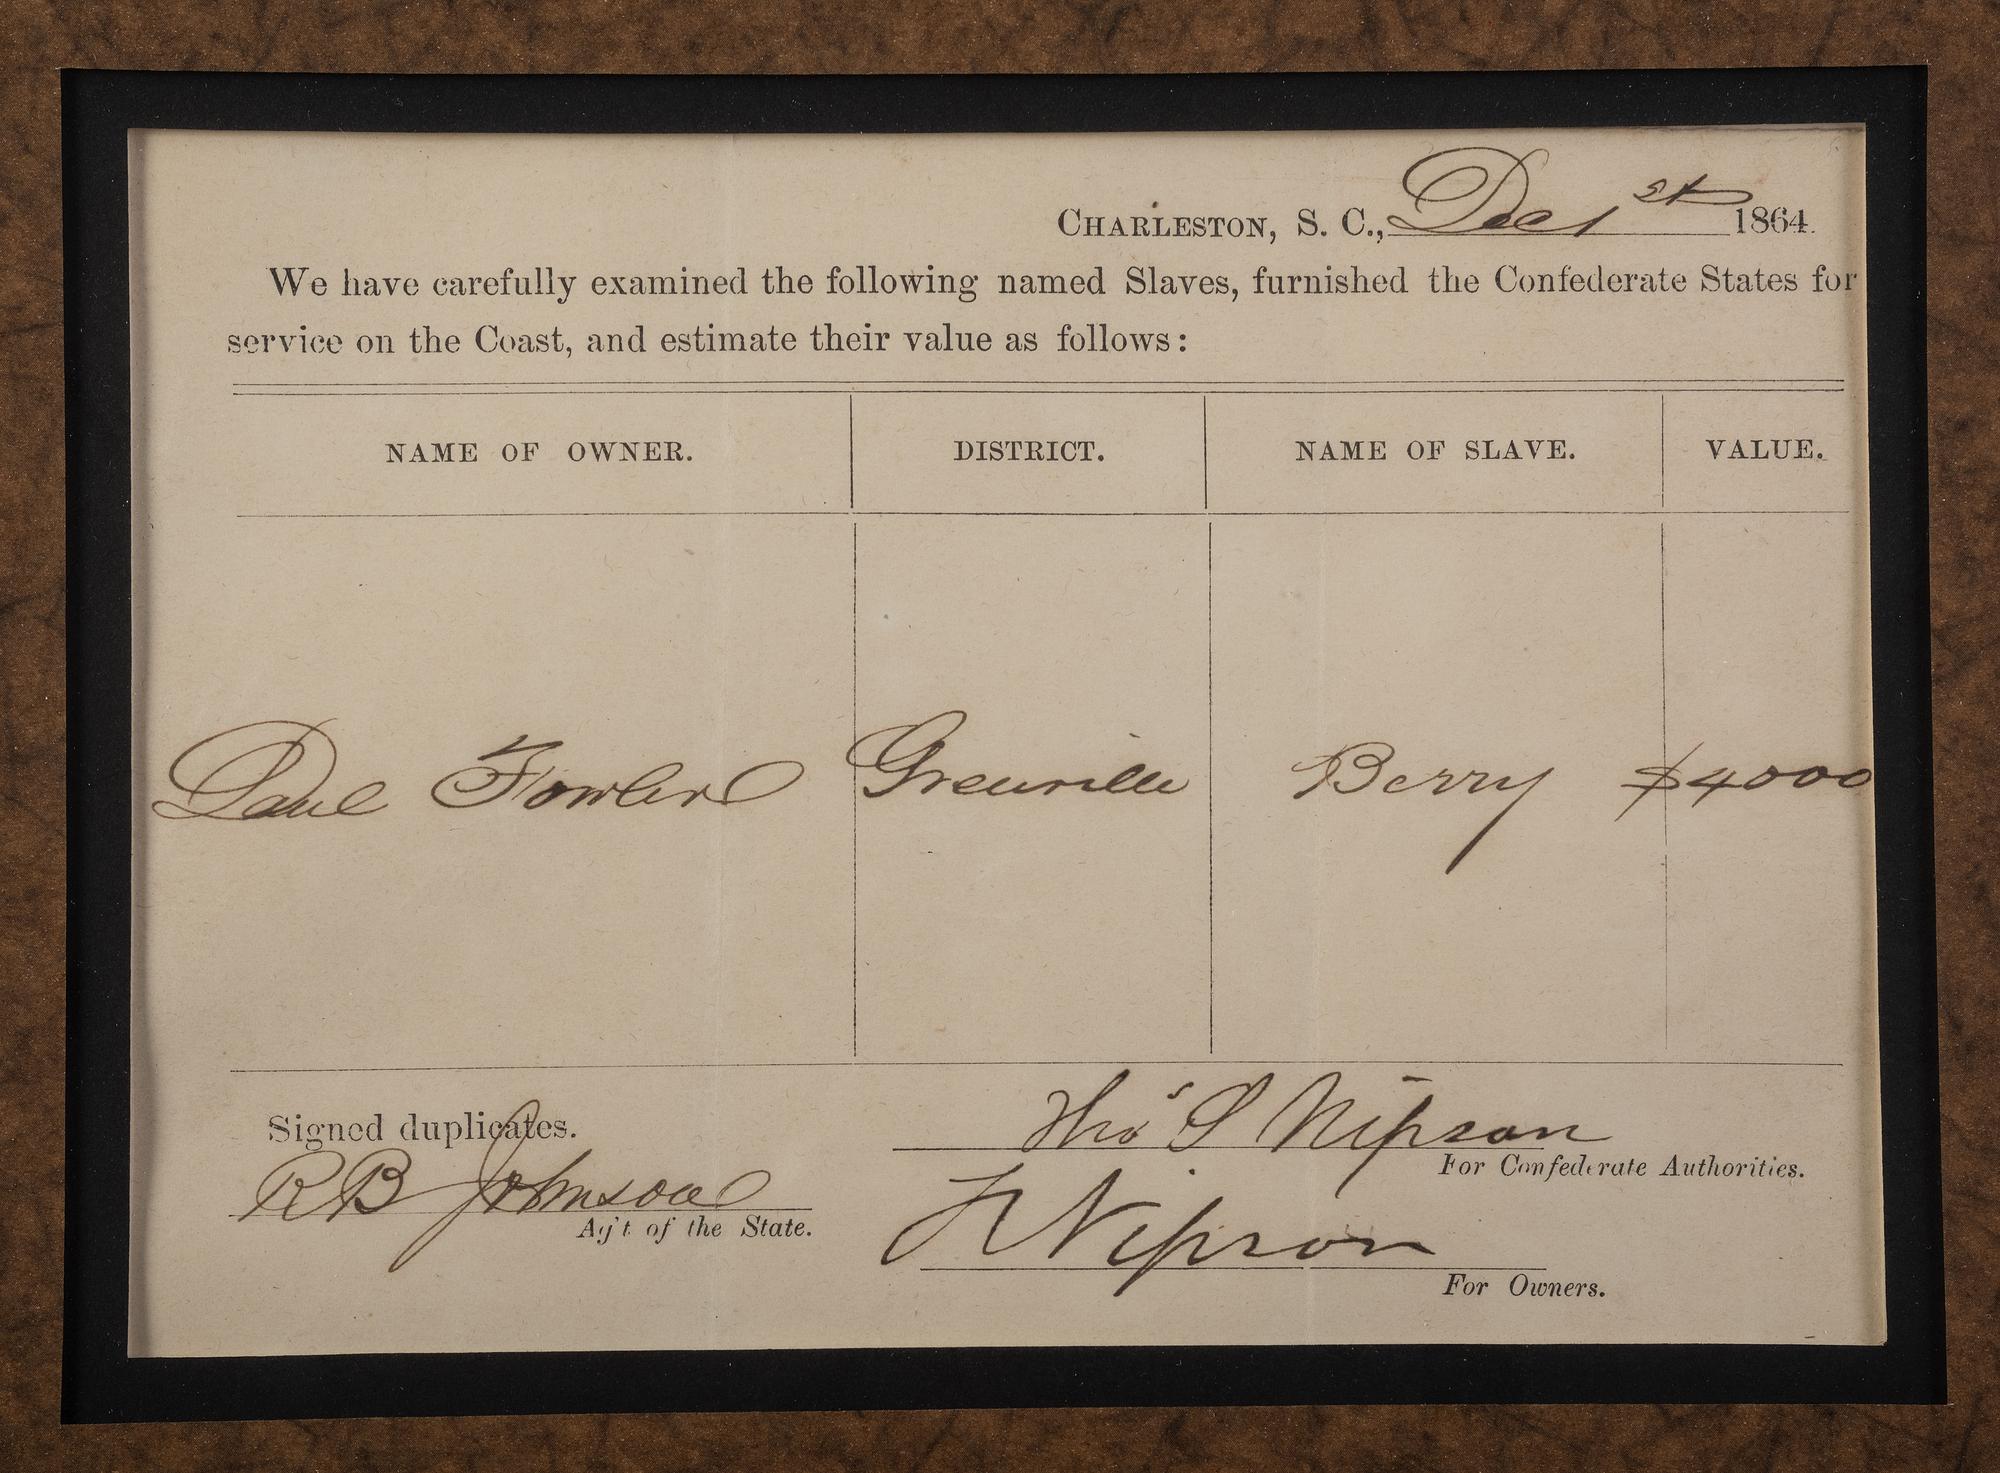 CHARLESTON, S. C., Dec 1st 1864.
We have carefully examined the following named Slaves, furnished the Confederate States for
service on the Coast, and estimate their value as follows:
NAME OF OWNER. DISTRICT. NAME OF SLAVE. VALUE.
Fowler Greenville Berry $4000
Signed duplicates.
Thos S Nipson
For Confederate Authorities.
R B Johnson
Ag't of the State.
Nipson
For Owners.